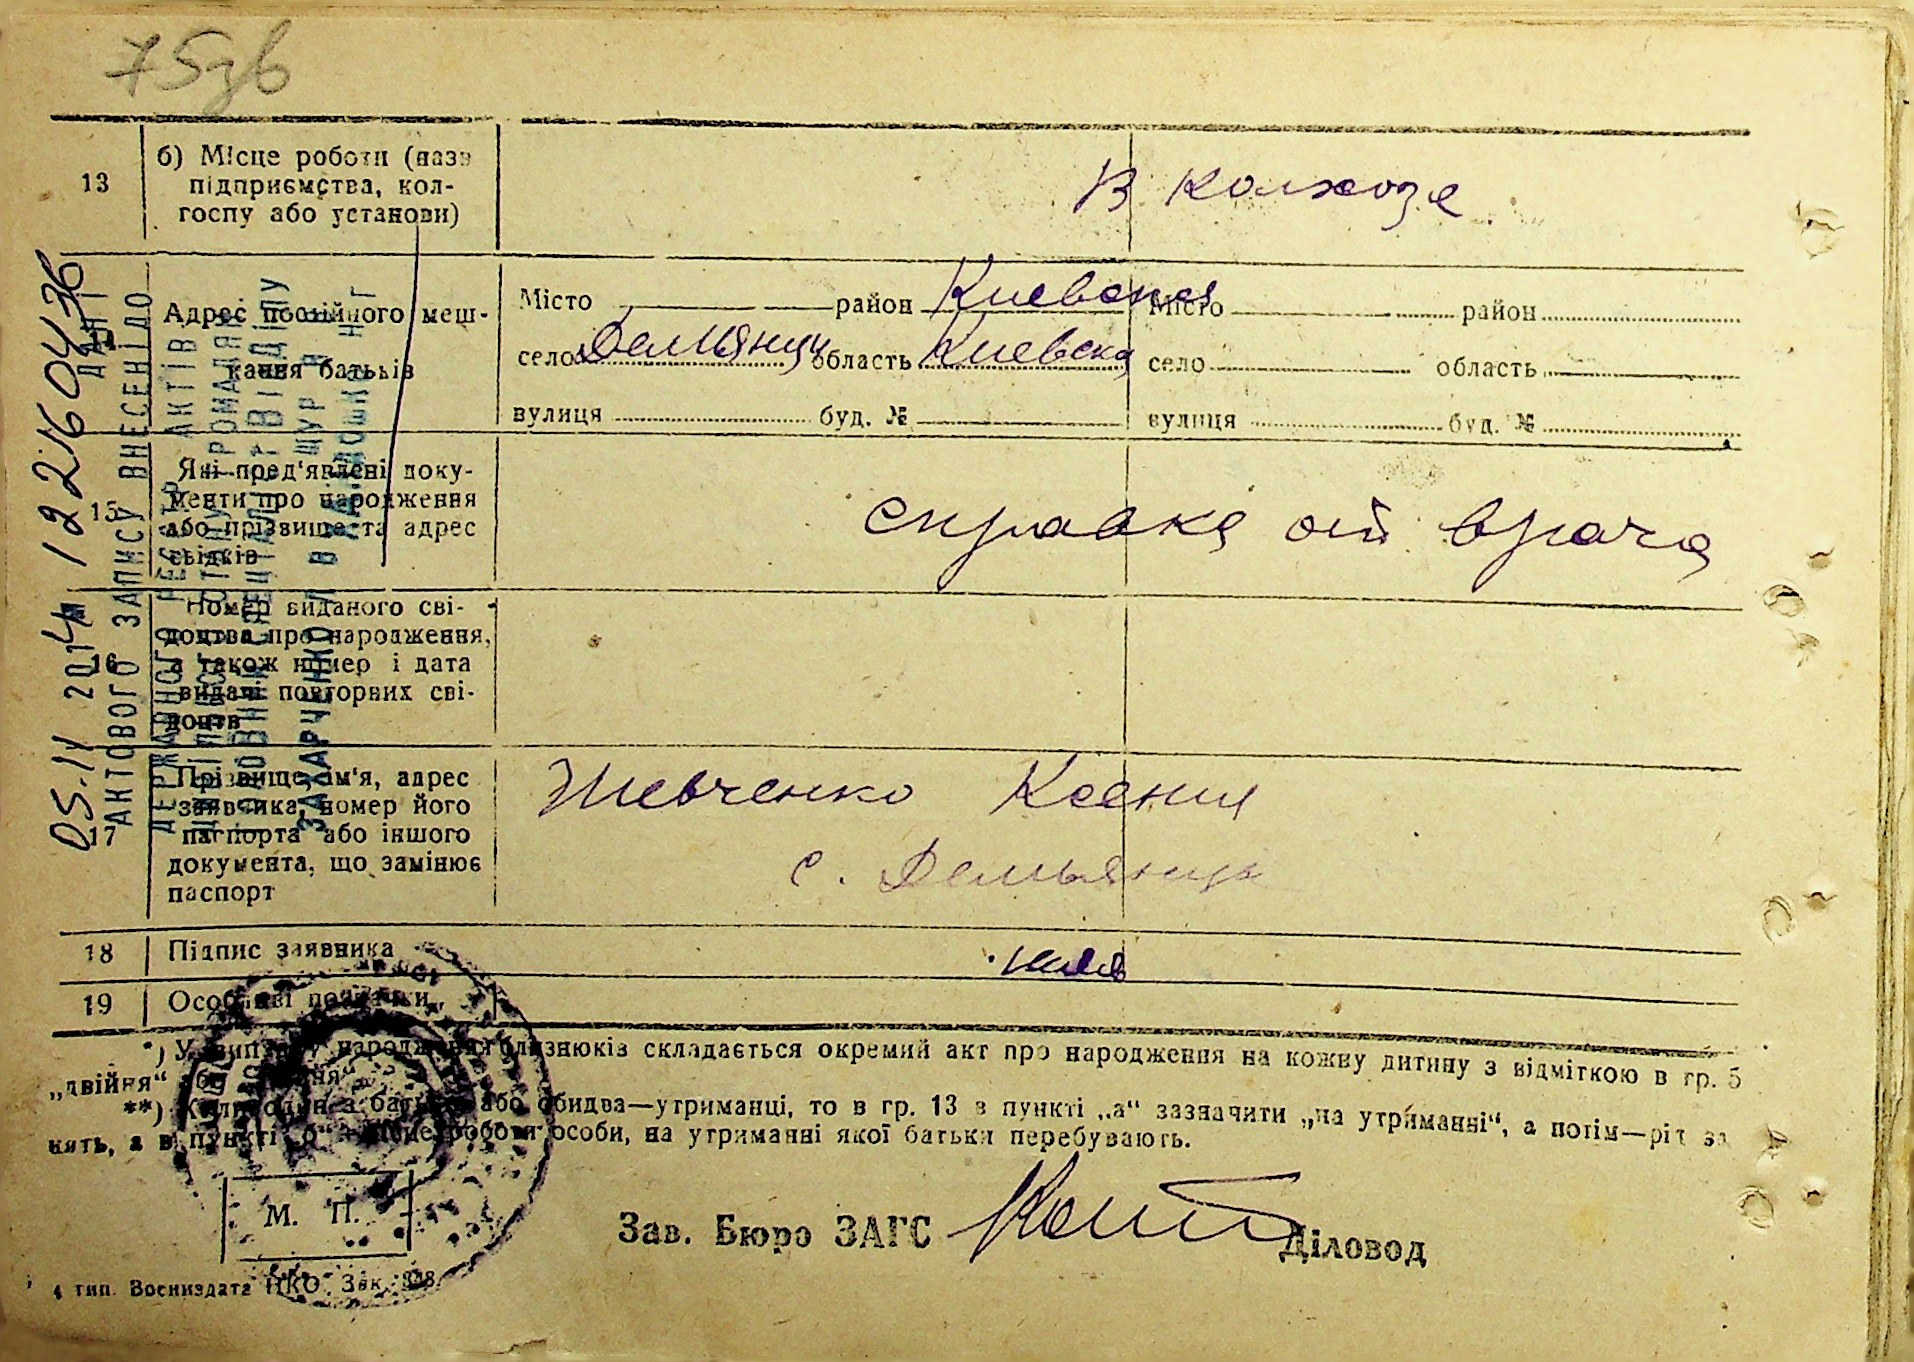 75зв
13 б) Місце роботи (назв
підприємства, кол-
госпу або установи)
В колхозе
14 Адрес постійного меш-
кання батьків
Місто район Киевская Місто район
село Демьянцы область Киевска село область
вулиця буд. № вулиця буд. №
15 Які пред'явлені доку-
менти про народження
або прізвище та адрес
свідків
справка от врача
16 Номер виданого сві-
доцтва про народження,
а також номер і дата
видачі повторних сві-
доцтв
17 Прізвище, ім'я, адрес
заявника, номер його
паспорта або іншого
документа, що замінює
паспорт
Шевченко Ксения
с. Демьянцы
18 Підпис заявника
19 Особливі позначки
*) У випадку народження близнюків складається окремий акт про народження на кожну дитину з відміткою в гр. 5
„двійня“ або
**) Коли один з батьків або обидва—утриманці, то в гр. 13 в пункті „а“ зазначити „на утриманні“, а потім—рід за
нять, а в пункті „б“ — місце роботи особи, на утриманні якої батьки перебувають.
М. П.
Зав. Бюро ЗАГС Діловод
4 тип. Воениздата НКО. Зак.
05.11 2014 12260436
ДАНІ
АКТОВОГО ЗАПИСУ ВНЕСЕНІ ДО
ДЕРЖАВНОГО РЕЄСТР АКТІВ
ЦИВІЛЬНОГО СТАНУ ГРОМАДЯН
ЗАХАРЧЕНКО